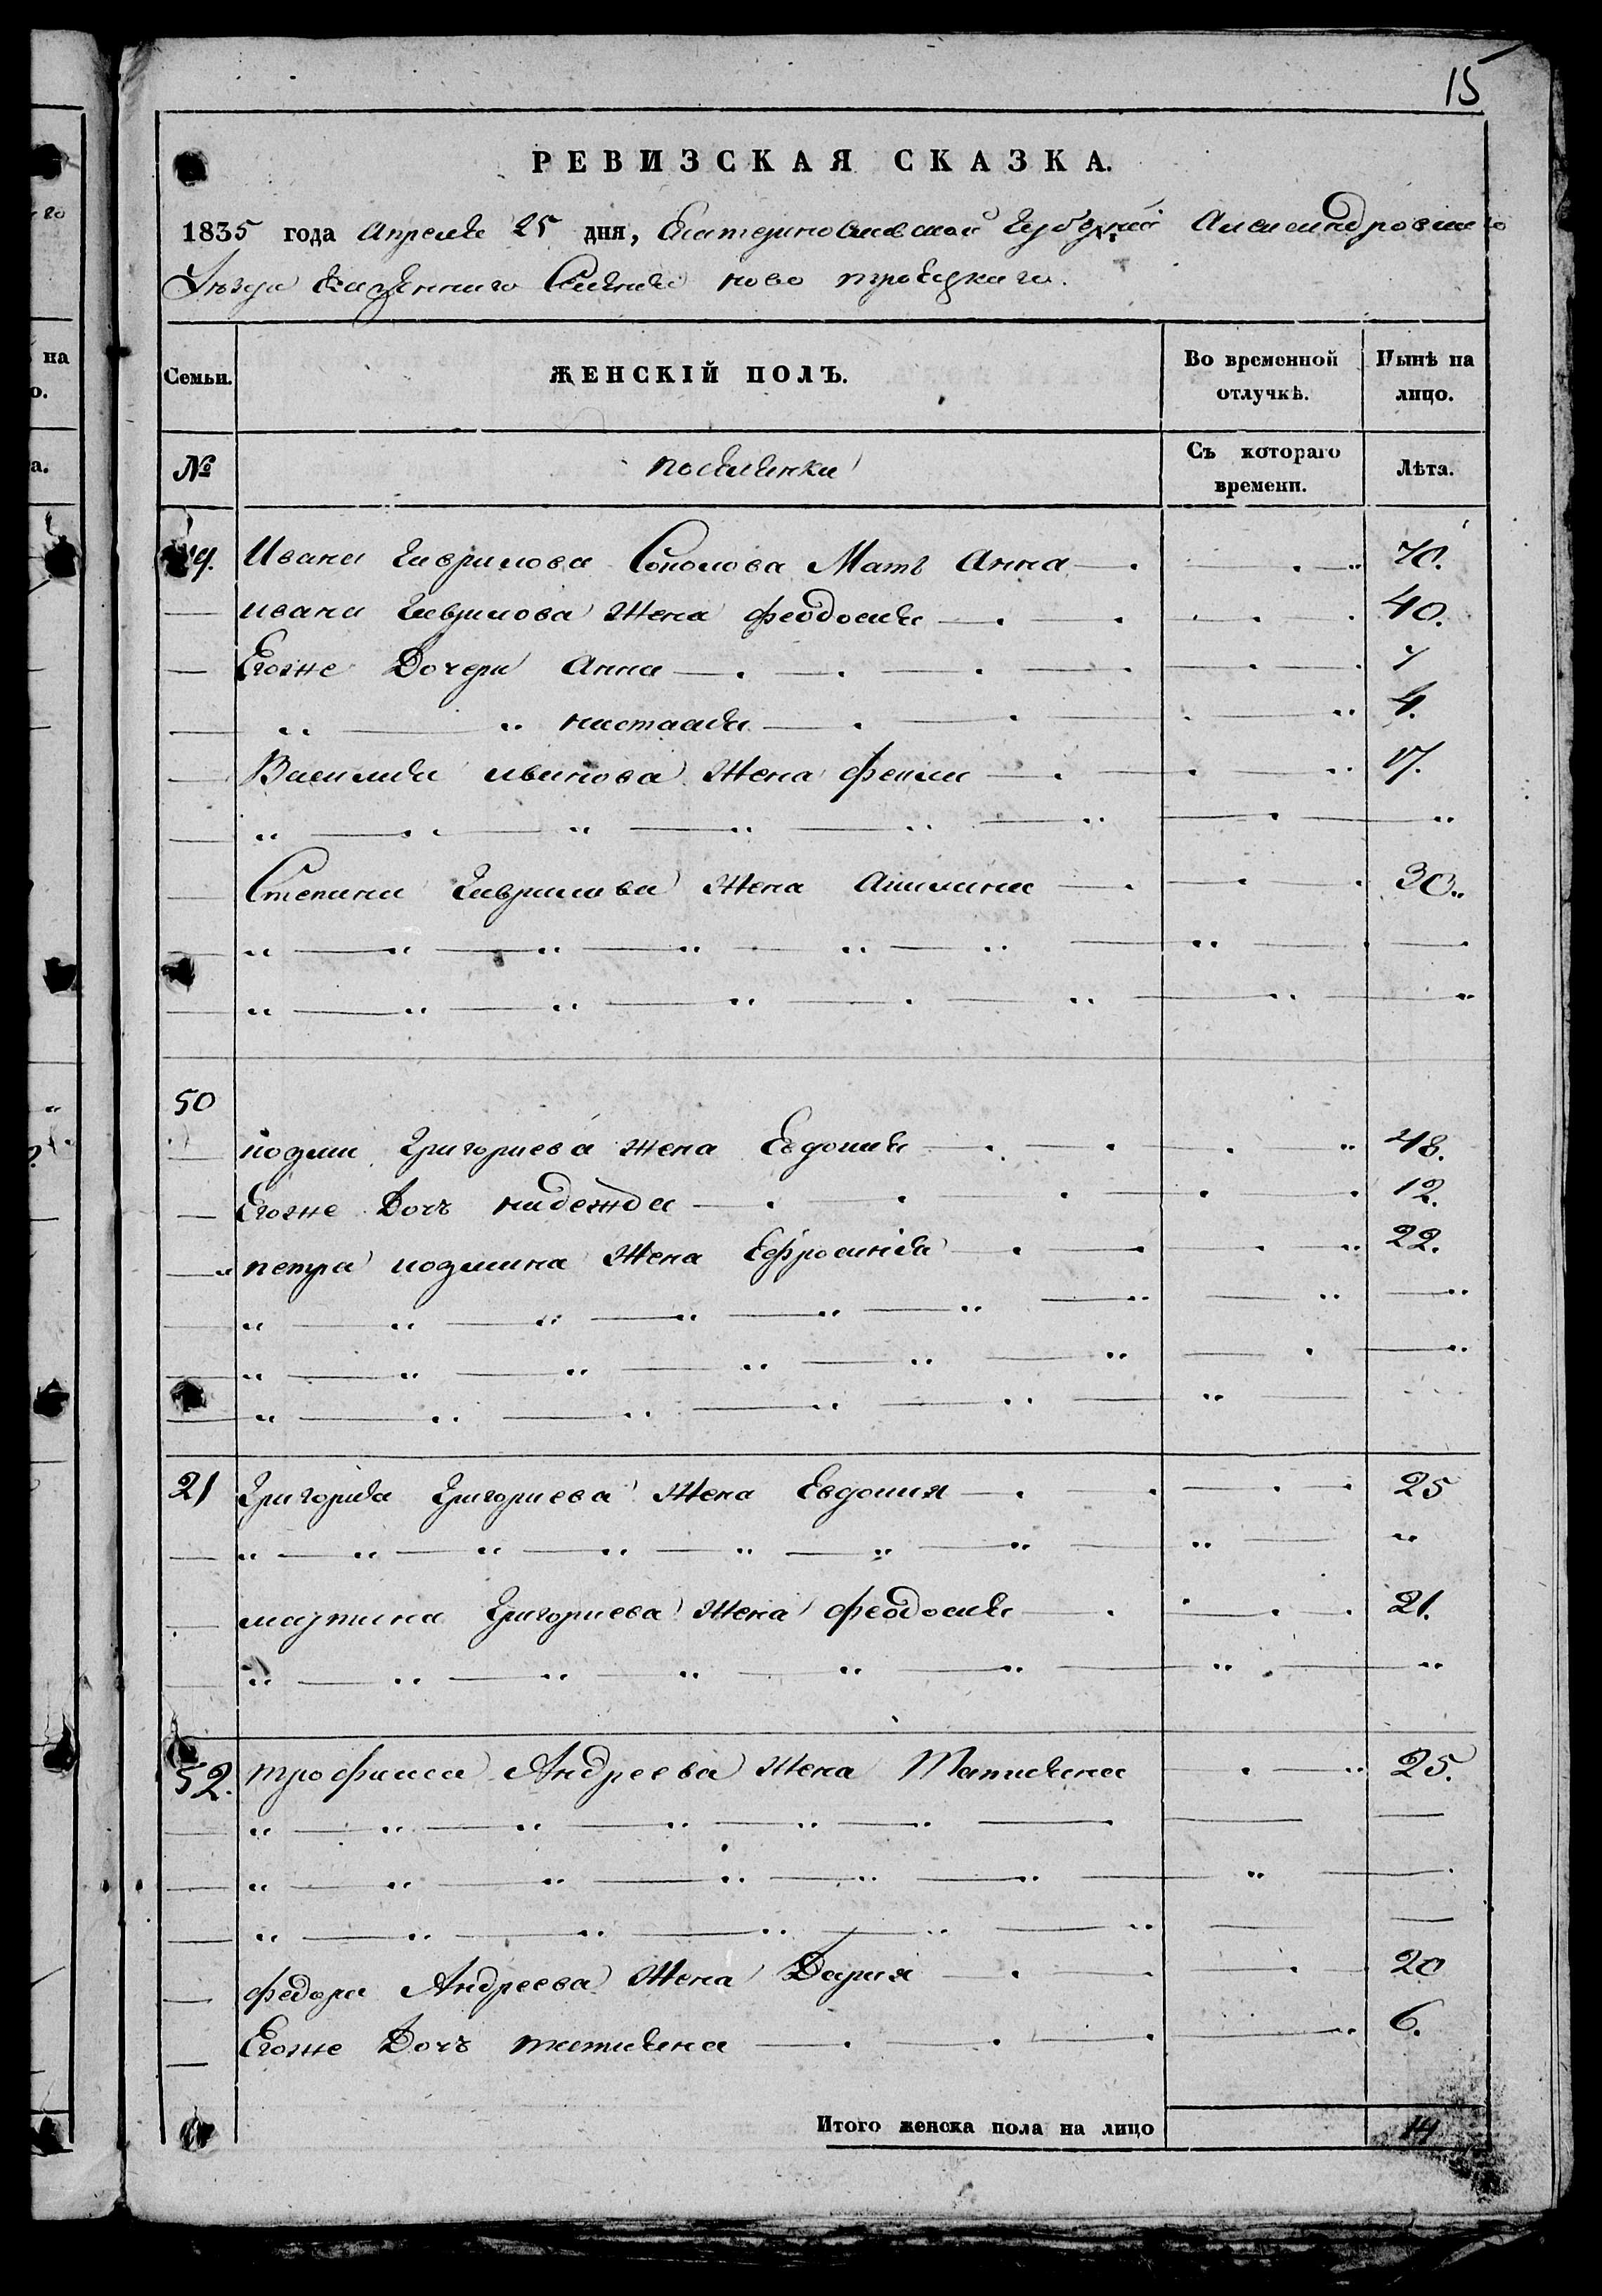 15
РЕВИЗСКАЯ СКАЗКА.
1835 года Апреля 25 дня, Екатеринославской Губернии Александровского
Уезда Казенного Селения ново троецкаго.
Семьи.
ЖЕНСКІЙ ПОЛЪ.
Во временной отлучкѣ.
Нынѣ на лицо.
№
поселенки
Съ котораго времени.
Лѣта.
49. Ивана Гаврилова Соколова Мать Анна 70.
ивана Гаврилова Жена феодосия 40.
Егоже Дочери Анна 7
" " настасия 4.
Василия иванова Жена фекла 17.
Степана Гаврилова Жена Акилина 30
50
козми Григориева жена Евдокия 48.
Егоже Дочъ надежда 12.
петра козмина Жена Ефросиния 22.
21 Григория Григориева Жена Евдокия 25
мартина Григориева Жена феодосия 21.
52. трофима Андреева Жена Татияна 25.
федора Андреева Жена Дария 20
Егоже Дочъ татияна 6.
Итого женска пола на лицо 14
на
о.
а.